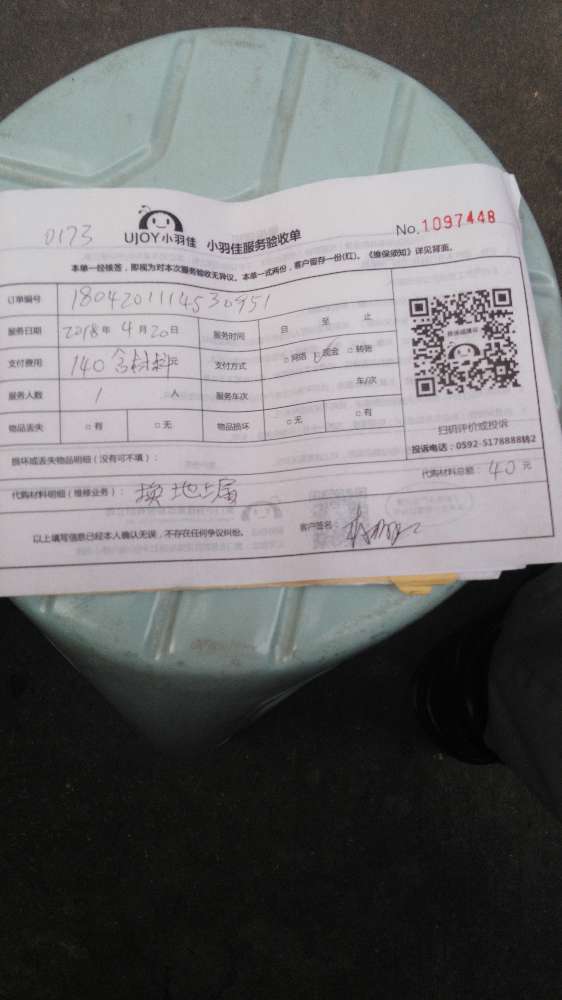 0173
UJOY小羽佳 小羽佳服务验收单
No.1097448
本单一经核签，即视为对本次服务验收无异议。本单一式两份，客户留存一份(红)。《维保须知》详见背面。
订单编号 1804201114530951
服务日期 2018年 4月20日 服务时间 自 至 止
支付费用 140含材料元 支付方式 □网络 □现金 □转账
服务人数 1 人 服务车次 车/次
物品丢失 □有 □无 物品损坏 □无 □有
扫码评价或投诉
投诉电话：0592-5178888转2
损坏或丢失物品明细（没有可不填）：
代购材料明细（维修业务）： 换地漏 代购材料总额：40元
以上填写信息已经本人确认无误，不存在任何争议纠纷。 客户签名：